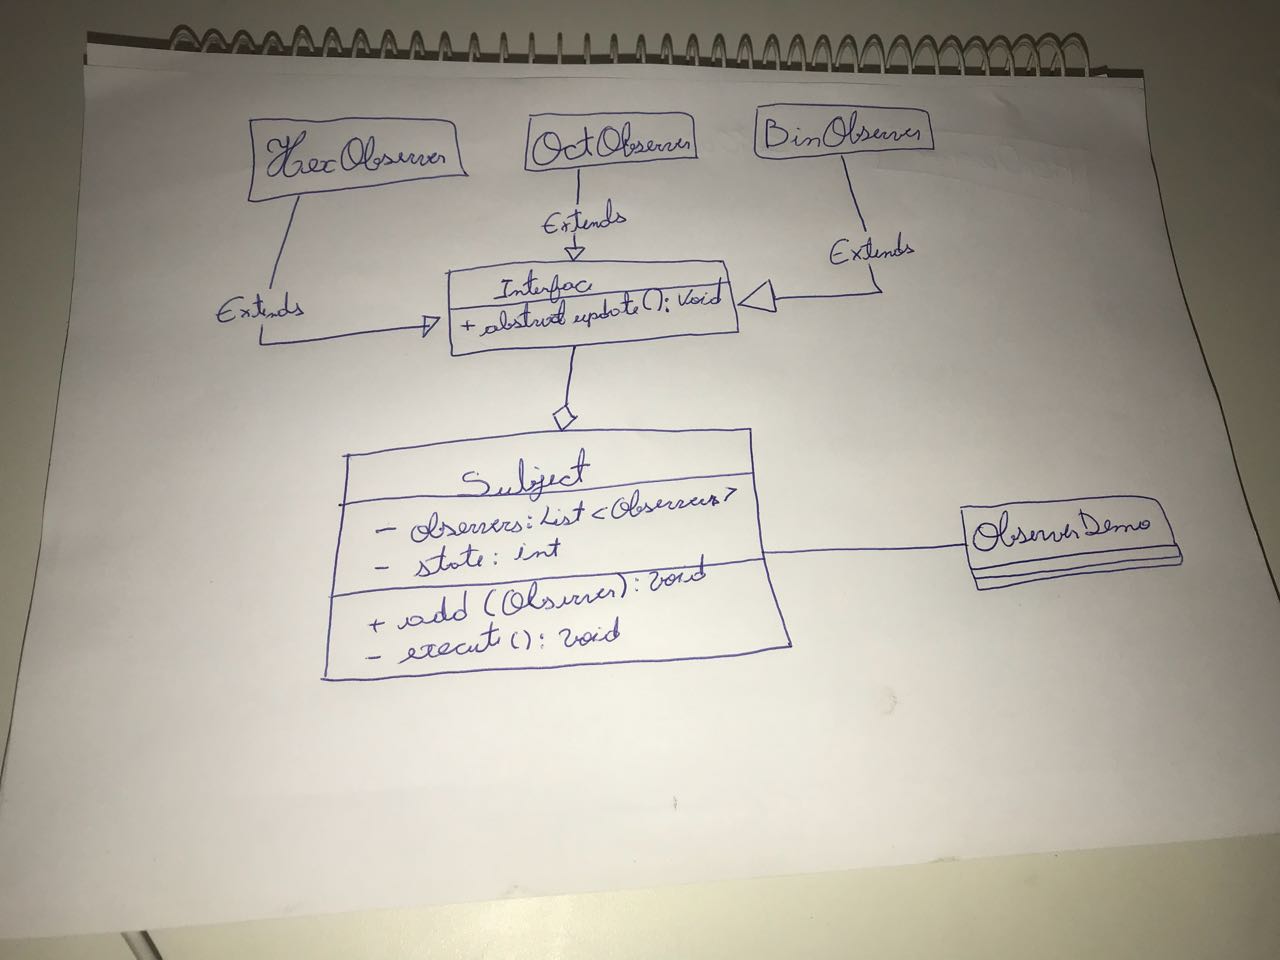 HexObserver
OctObserver
BinObserver
Extends
Extends
Extends
Interfac
+ abstract update(): void
Subject
- observers: List <Observers>
- state: int
+ add (Observer): void
- execute(): void
ObserverDemo